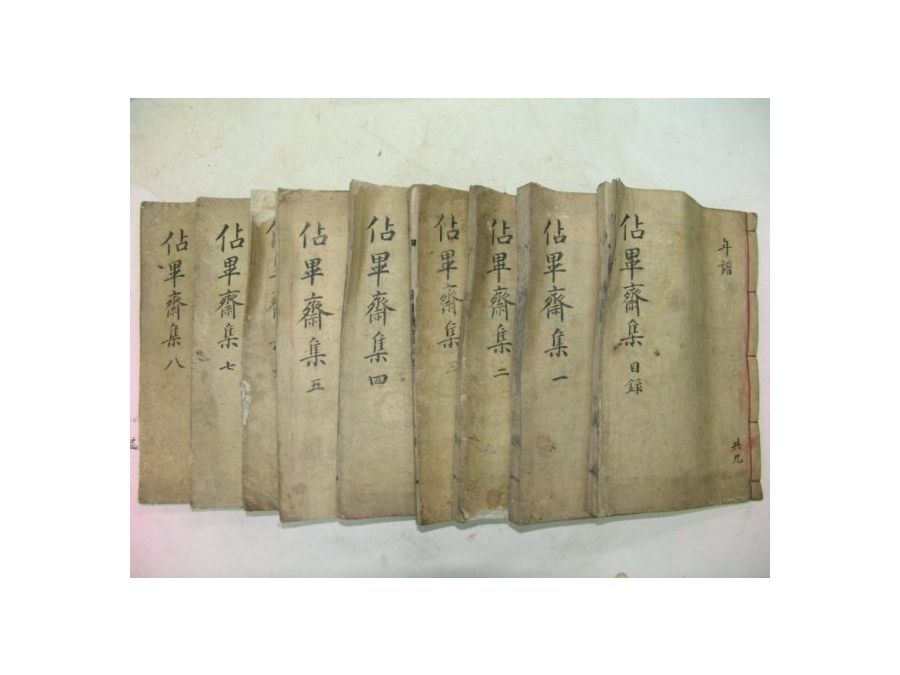 年譜
共九
佔畢齋集 目錄
佔畢齋集 一
佔畢齋集 二
佔畢齋集 三
佔畢齋集 四
佔畢齋集 五
佔畢齋集 七
佔畢齋集 八